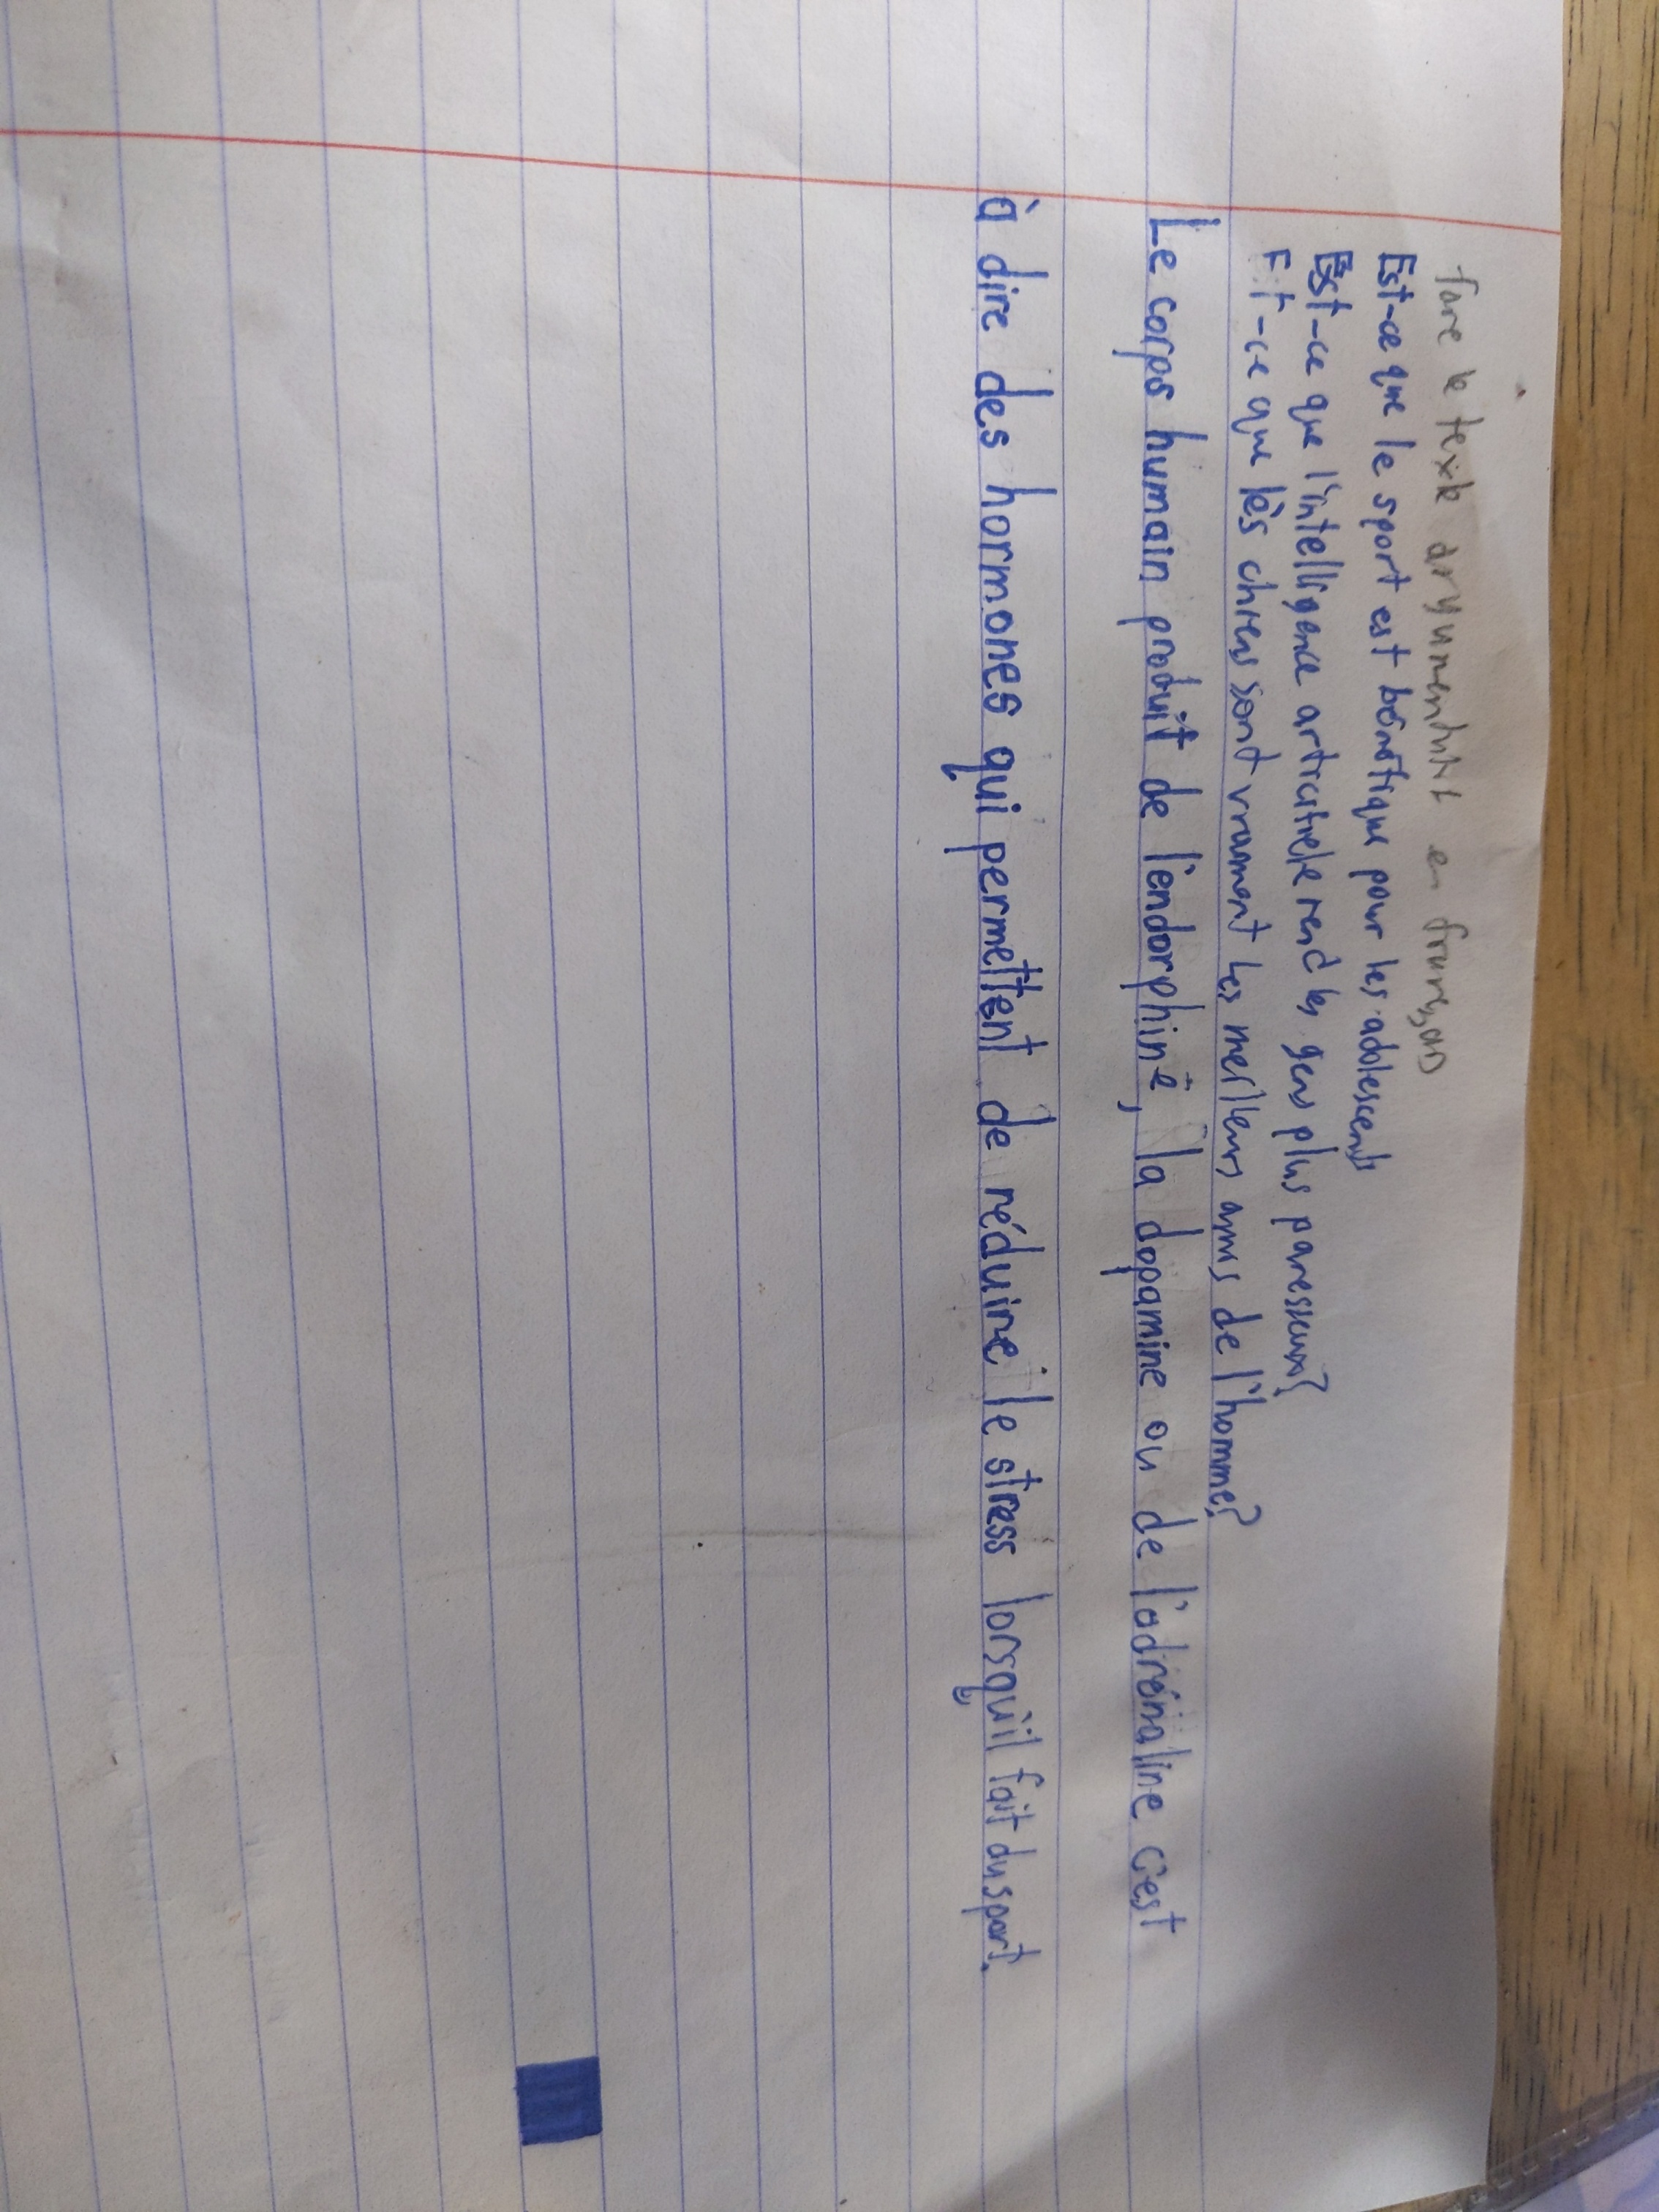 faire le texte argumentatif en français
Est-ce que le sport est bénéfique pour les adolescents
Est-ce que l'intelligence artificielle rend les gens plus paresseux?
Est-ce que les chiens sont vraiment les meilleurs amis de l'homme?
Le corps humain produit de l'endorphine, la dopamine ou de l'adrénaline c'est
à dire des hormones qui permettent de réduire le stress lorsqu'il fait du sport.